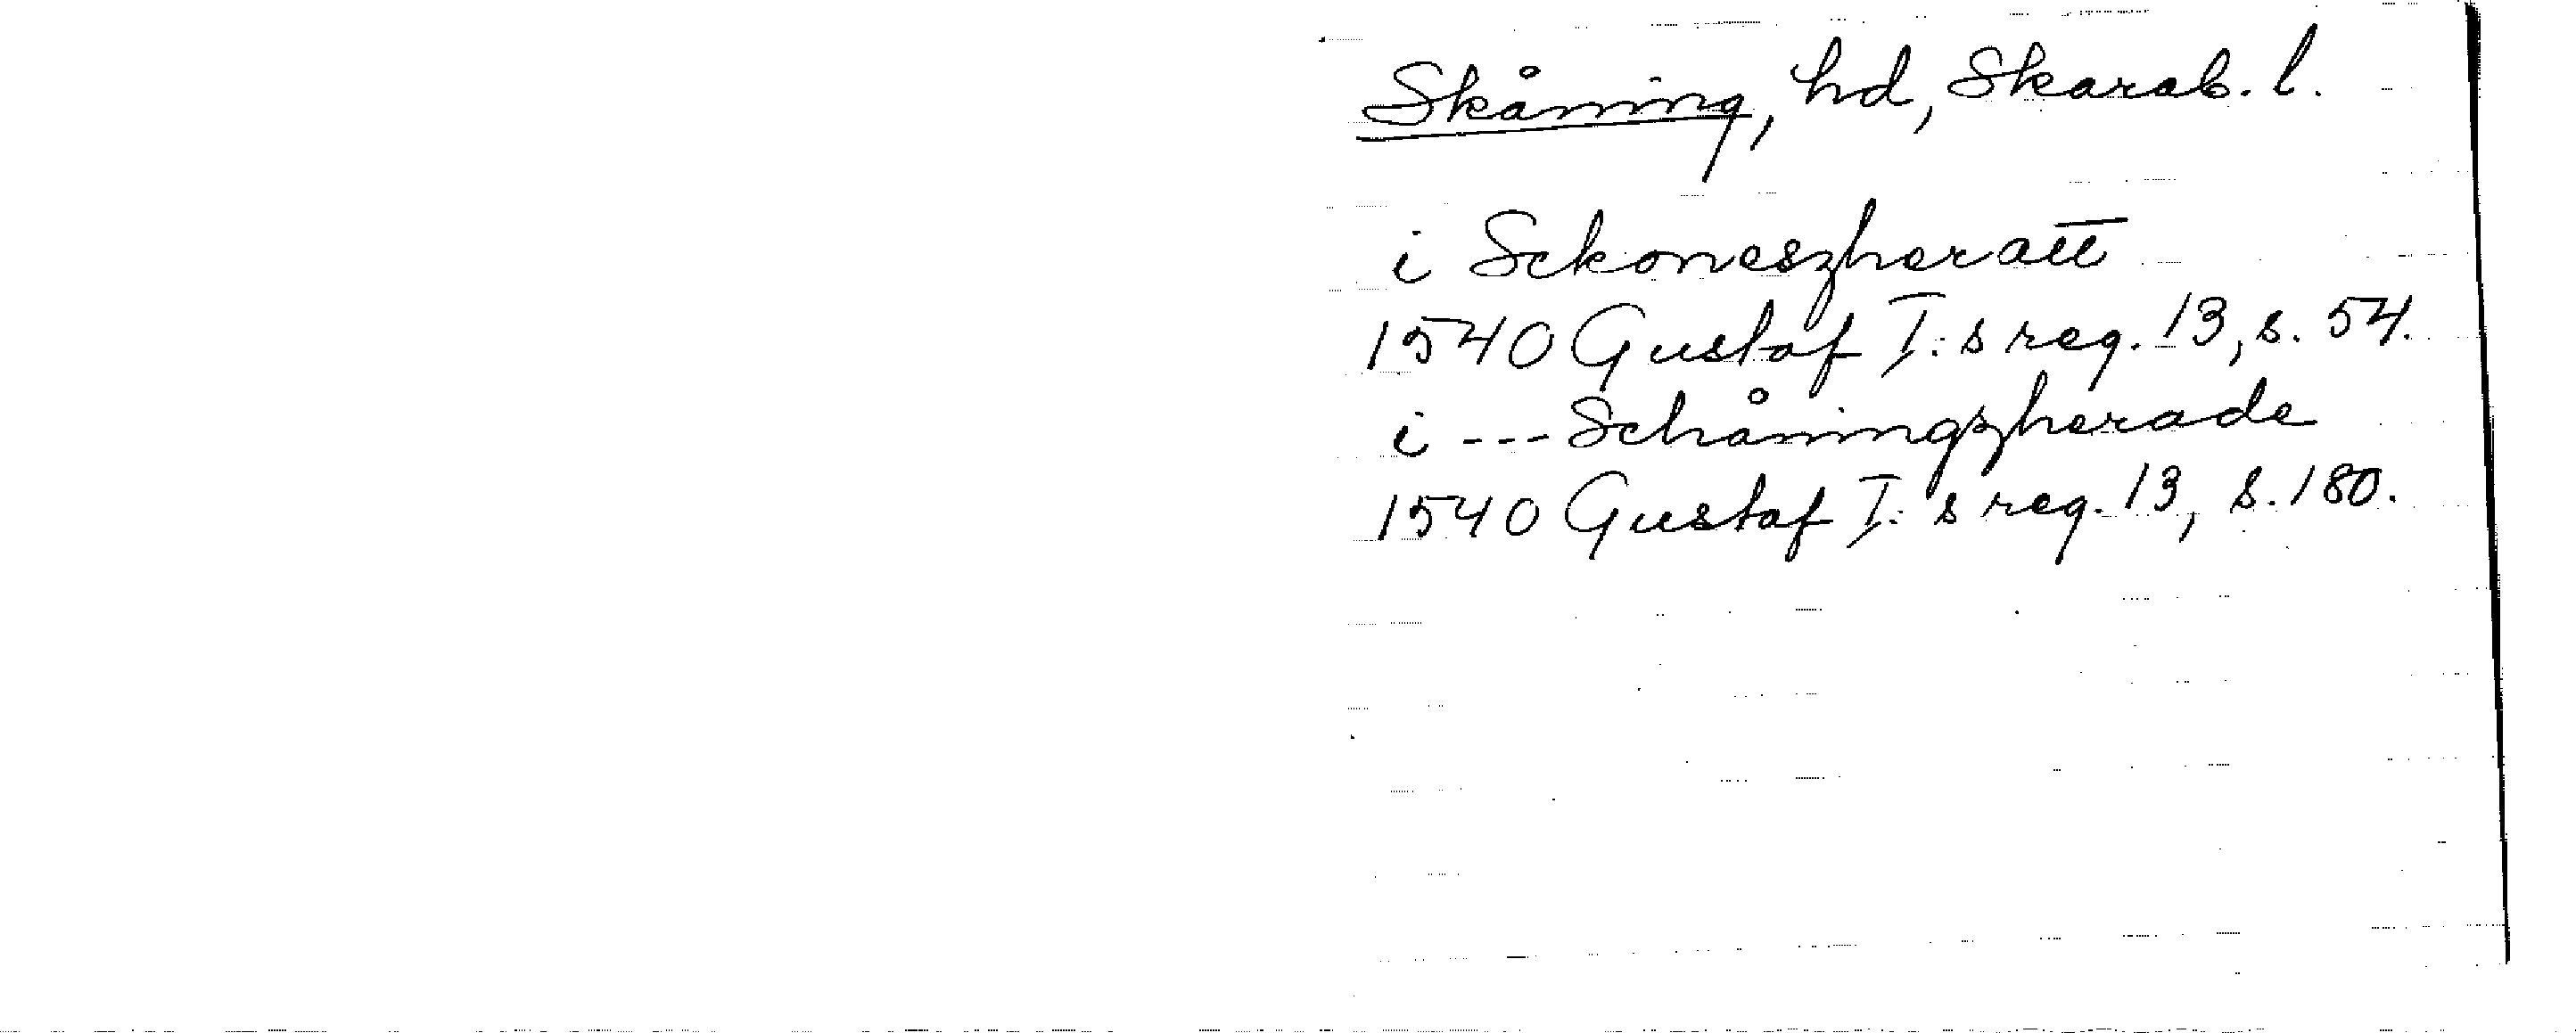 Skåning, hd, Skarab. l.
i Sckoneszheratt
1540 Gustaf I:s reg. 13, s. 54.
i --- Schåningzherade
1540 Gustaf I:s reg. 13, s. 180.